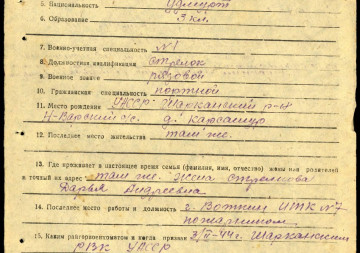 5. Национальность удмурт
6. Образование 3 кл.
7. Военно-учетная специальность №1
8. Должностная квалификация стрелок
9. Военное звание рядовой
10. Гражданская специальность портной
11. Место рождения УАССР Шарканский р-н
с/с. д.
12. Последнее место жительства там же.
13. Где проживает в настоящее время семья (фамилия, имя, отчество) жены или родителей
и точный их адрес там же. Жена Стрелкова
Дарья Андреевна
14. Последнее место работы и должность г. ИТК №7
пожарником.
15. Каким райгорвоенкоматом и когда призван 3/II-44г. Шарканским
РВК УАССР